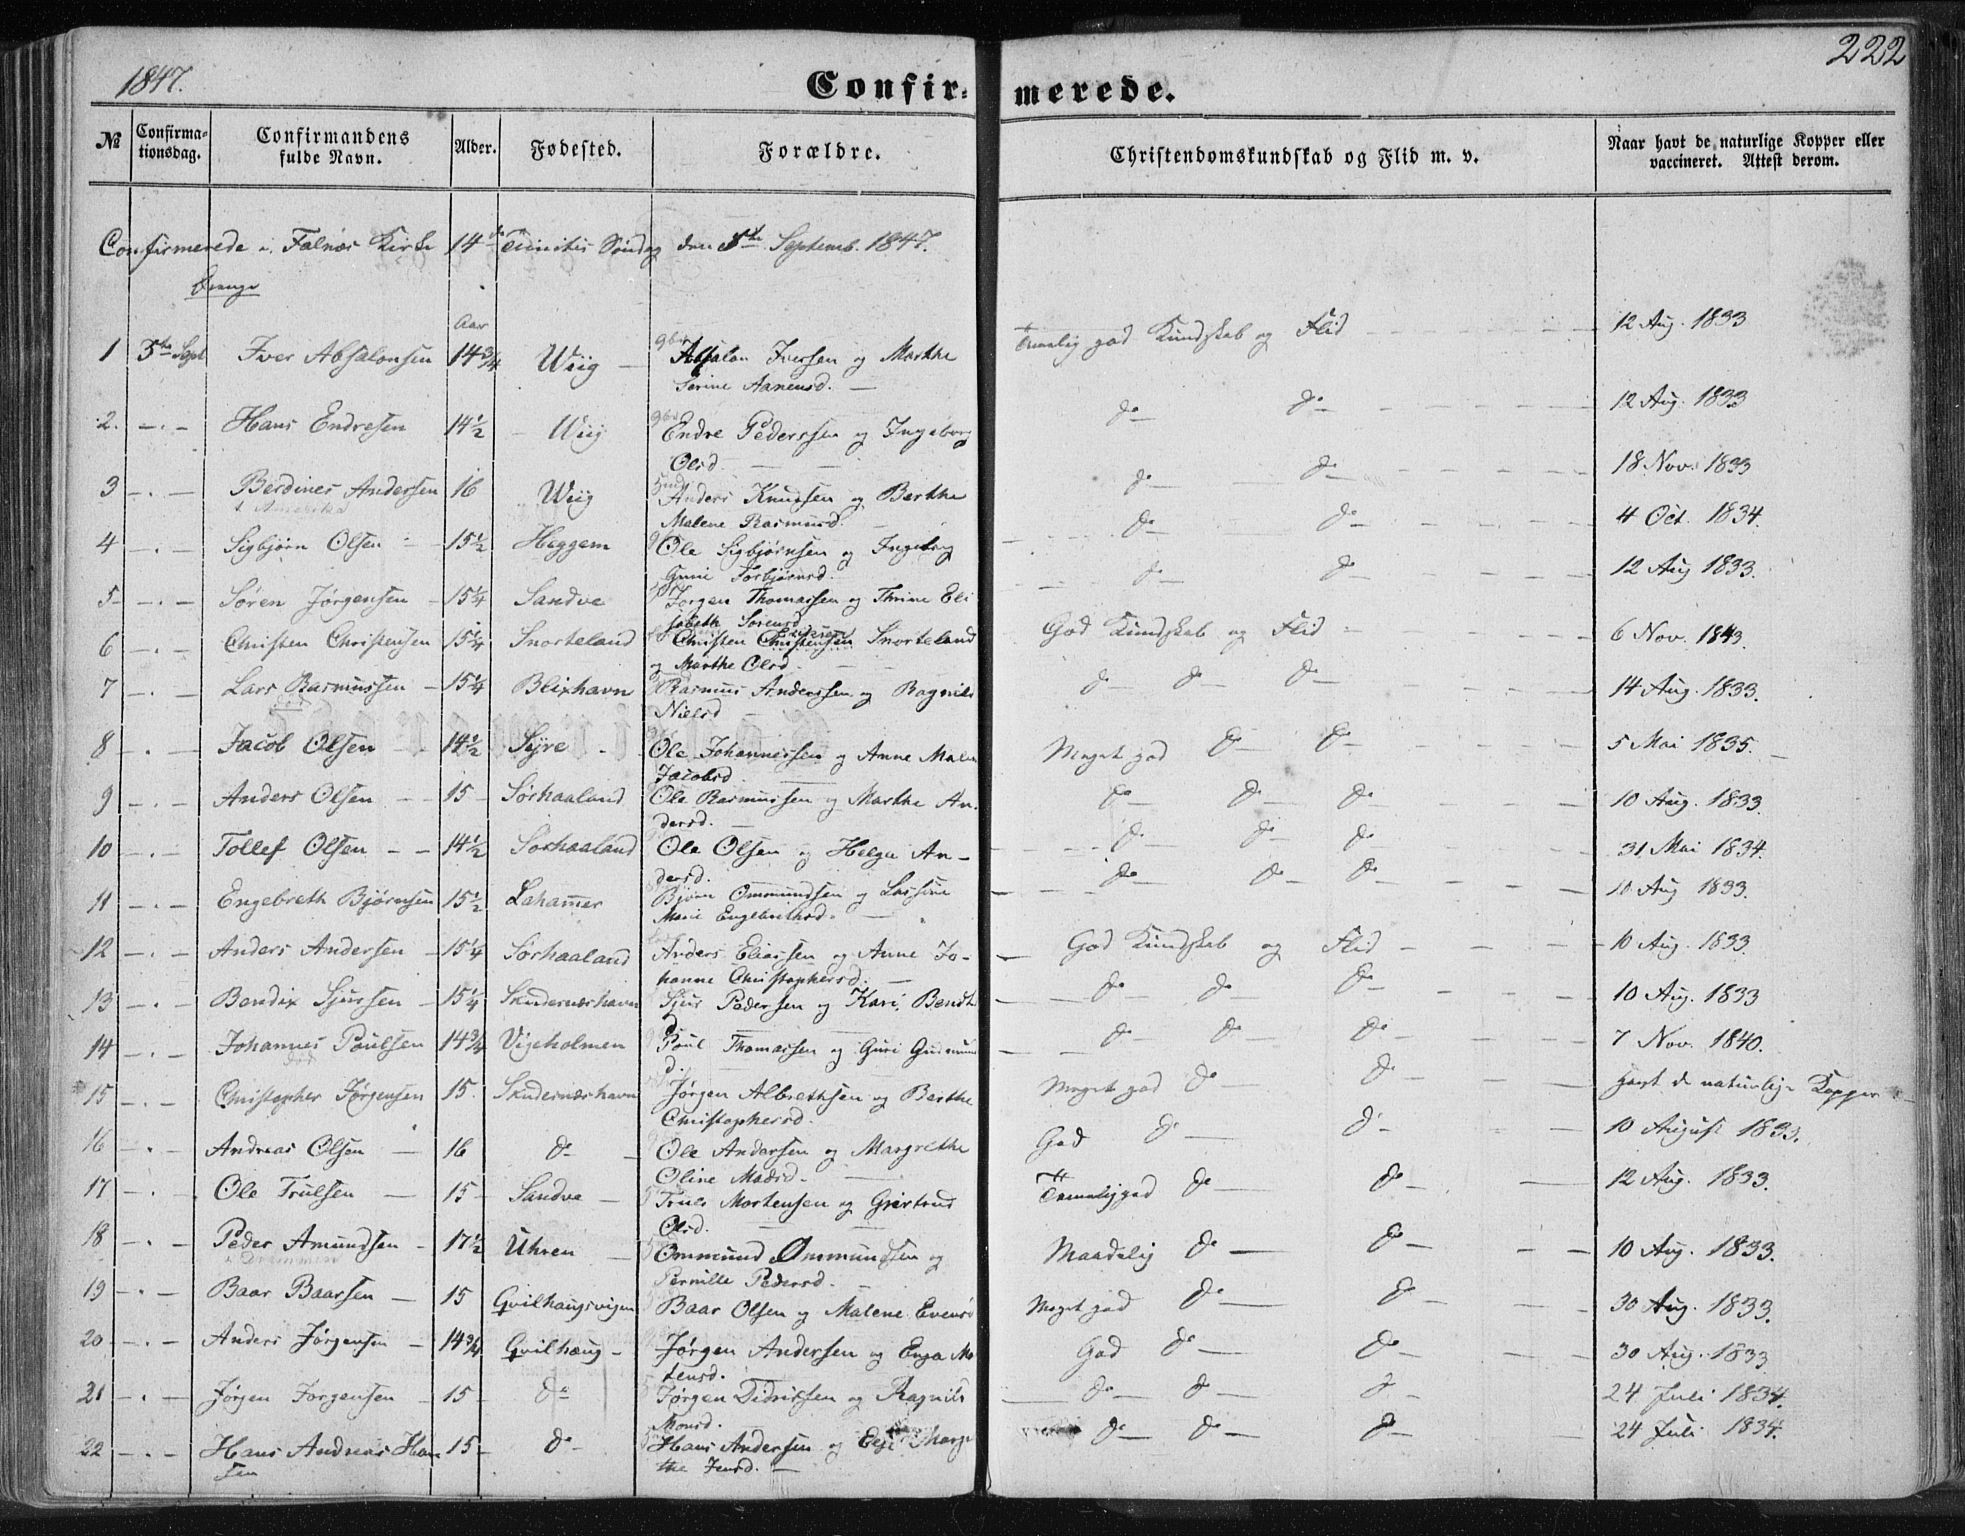 1847.
Confirmerede.
222
No Confirmationsdag. Confirmandens fulde Navn. Alder. Fødested. Forældre. Christendomskundskab og Flid m. v. Naar havt de naturlige Kopper eller vaccineret. Attest derom.
Confirmerede i Falnæs Kirke 14de Trinitis Søndag den 5te Septemb. 1847.
Drenge
Aar
1 5te Sept Iver Absalonsen 14 3/4 Wiig Absalon Iversen og Marthe Serine Aanensd. Temelig god Kundskab og Flid 12 Aug. 1833
2. -.- Hans Endresen 14 1/2 Wiig Endre Pederssen og Ingeborg Olsd. do do 12 Aug. 1833
3 -.- Berdines Andersen 16 Wiig Anders Knudsen og Berthe Malene Rasmusd. do do 18 Nov. 1833
4 -.- Sigbjørn Olsen 15 1/2 Heggem Ole Sigbjørnsen og Ingeborg Gurie Torbjørnsd. do do 4 Oct. 1834.
5 -.- Søren Jørgensen 15 1/4 Sandve Jørgen Thomassen og Thrine Elisabeth Sørensd. do do 12 Aug 1833.
6 -.- Christen Christensen 15 1/4 Snorteland Christen Christensen Snorteland og Marthe Olsd. God Kundskab og Flid 6 Nov. 1843.
7 -.- Lars Rasmussen 15 1/4 Blixhavn Rasmus Anderssen og Ragnild Nielsd do do do 14 Aug. 1833.
død
8 -.- Jacob Olsen 14 1/2 Syre Ole Johannessen og Anne Malen Jacobsd. Meget god do do 5 Mai 1835.
9 -.- Anders Olsen 15 Sørhaaland Ole Rasmussen og Marthe Andersd. do do do 10 Aug. 1833.
10 -.- Tollef Olsen 14 1/2 Sørhaaland Ole Olsen og Helga Andersd. do do do 31 Mai 1834.
11 -.- Engebreth Bjørnsen 15 1/2 Lahamer Bjørn Ommundsen og Lassine Marie Engebrethsd. do do do 10 Aug 1833.
12 -.- Anders Andersen 15 1/4 Sørhaaland Anders Eliassen og Anne Johanne Christophersd. God Kundskab og Flid 10 Aug. 1833.
13 -.- Bendix Sjursen 15 1/4 Skudernæshavn Sjur Pedersen og Kari Bendt do do do 10 Aug. 1833
14 -.- Johannes Poulsen 14 3/4 Vigeholmen Poul Thomassen og Guri Gudmund do do do 7 Nov. 1840.
død
15 -.- Christopher Jørgensen 15 Skudernæshavn Jørgen Albrethsen og Berthe Christophersd. Meget god do do havt de naturlige Kopper
16 -.- Andreas Olsen 16 do Ole Andersen og Margrethe Oline Madsd. God do do 10 August 1833.
17 -.- Ole Trulsen 15 Sandve Truls Mortensen og Gjertrud Olsd. Temelig god do do 12 Aug. 1833.
18 -.- Peder Amundsen 17 1/2 Uhren Ommund Ommundsen og Pernille Pedersd. Maadelig do do 10 Aug. 1833.
19 -.- Baar Baarsen 15 Qvilhaugsvigen Baar Olsen og Malene Evensd Meget god do do 30 Aug. 1833.
20 -.- Anders Jørgensen 14 3/4 Qvilhaug Jørgen Andersen og Enga Motensd. God do do 30 Aug. 1833
21 -.- Jørgen Jørgensen 15 do Jørgen Didrissen og Ragnild Monsd. do do do 24 Juli 1834.
22 -.- Hans Andreas Hansen 15 do Hans Andersen og Jensd. do do do 24 Juli 1834.